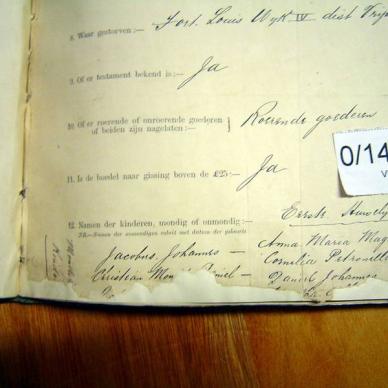 8. Waar gestorven:— Fort Louis Wyk IV dist Vry
9. Of er testament bekend is:— Ja
10. Of er roerende of onroerende goederen
of beiden zijn nagelaten:— Roerende goederen
0/14
11. Is de boedel naar gissing boven de £25:— Ja
12. Namen der kinderen, mondig of onmondig:— Eerste Huwely
NB.—Namen der onmondigen voluit met datum der geboorte
Jacobus Johannes — Anna Maria Mag
Cornelia Petronella
Christian — Daniel Johannes